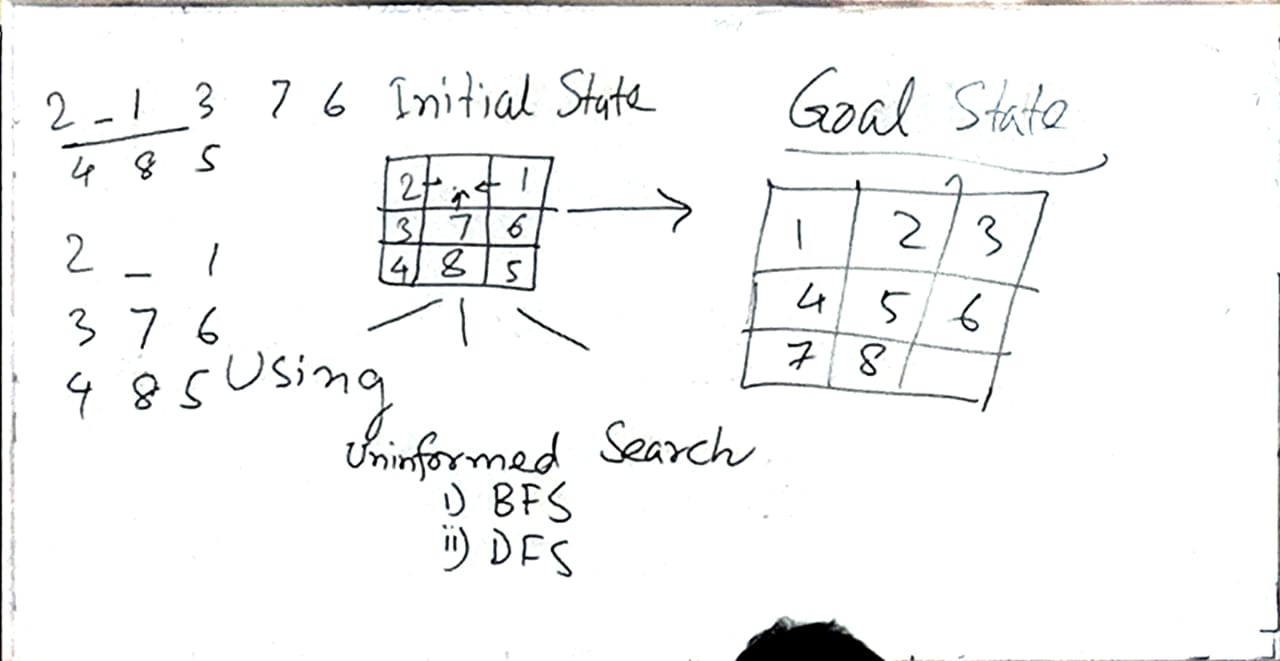 2 _ 1 3 7 6 Initial State
4 8 5
Goal State
2 1
3 7 6
4 8 5
1 2 3
4 5 6
7 8
2 _ 1
3 7 6
4 8 5
Using
Uninformed Search
i) BFS
ii) DFS